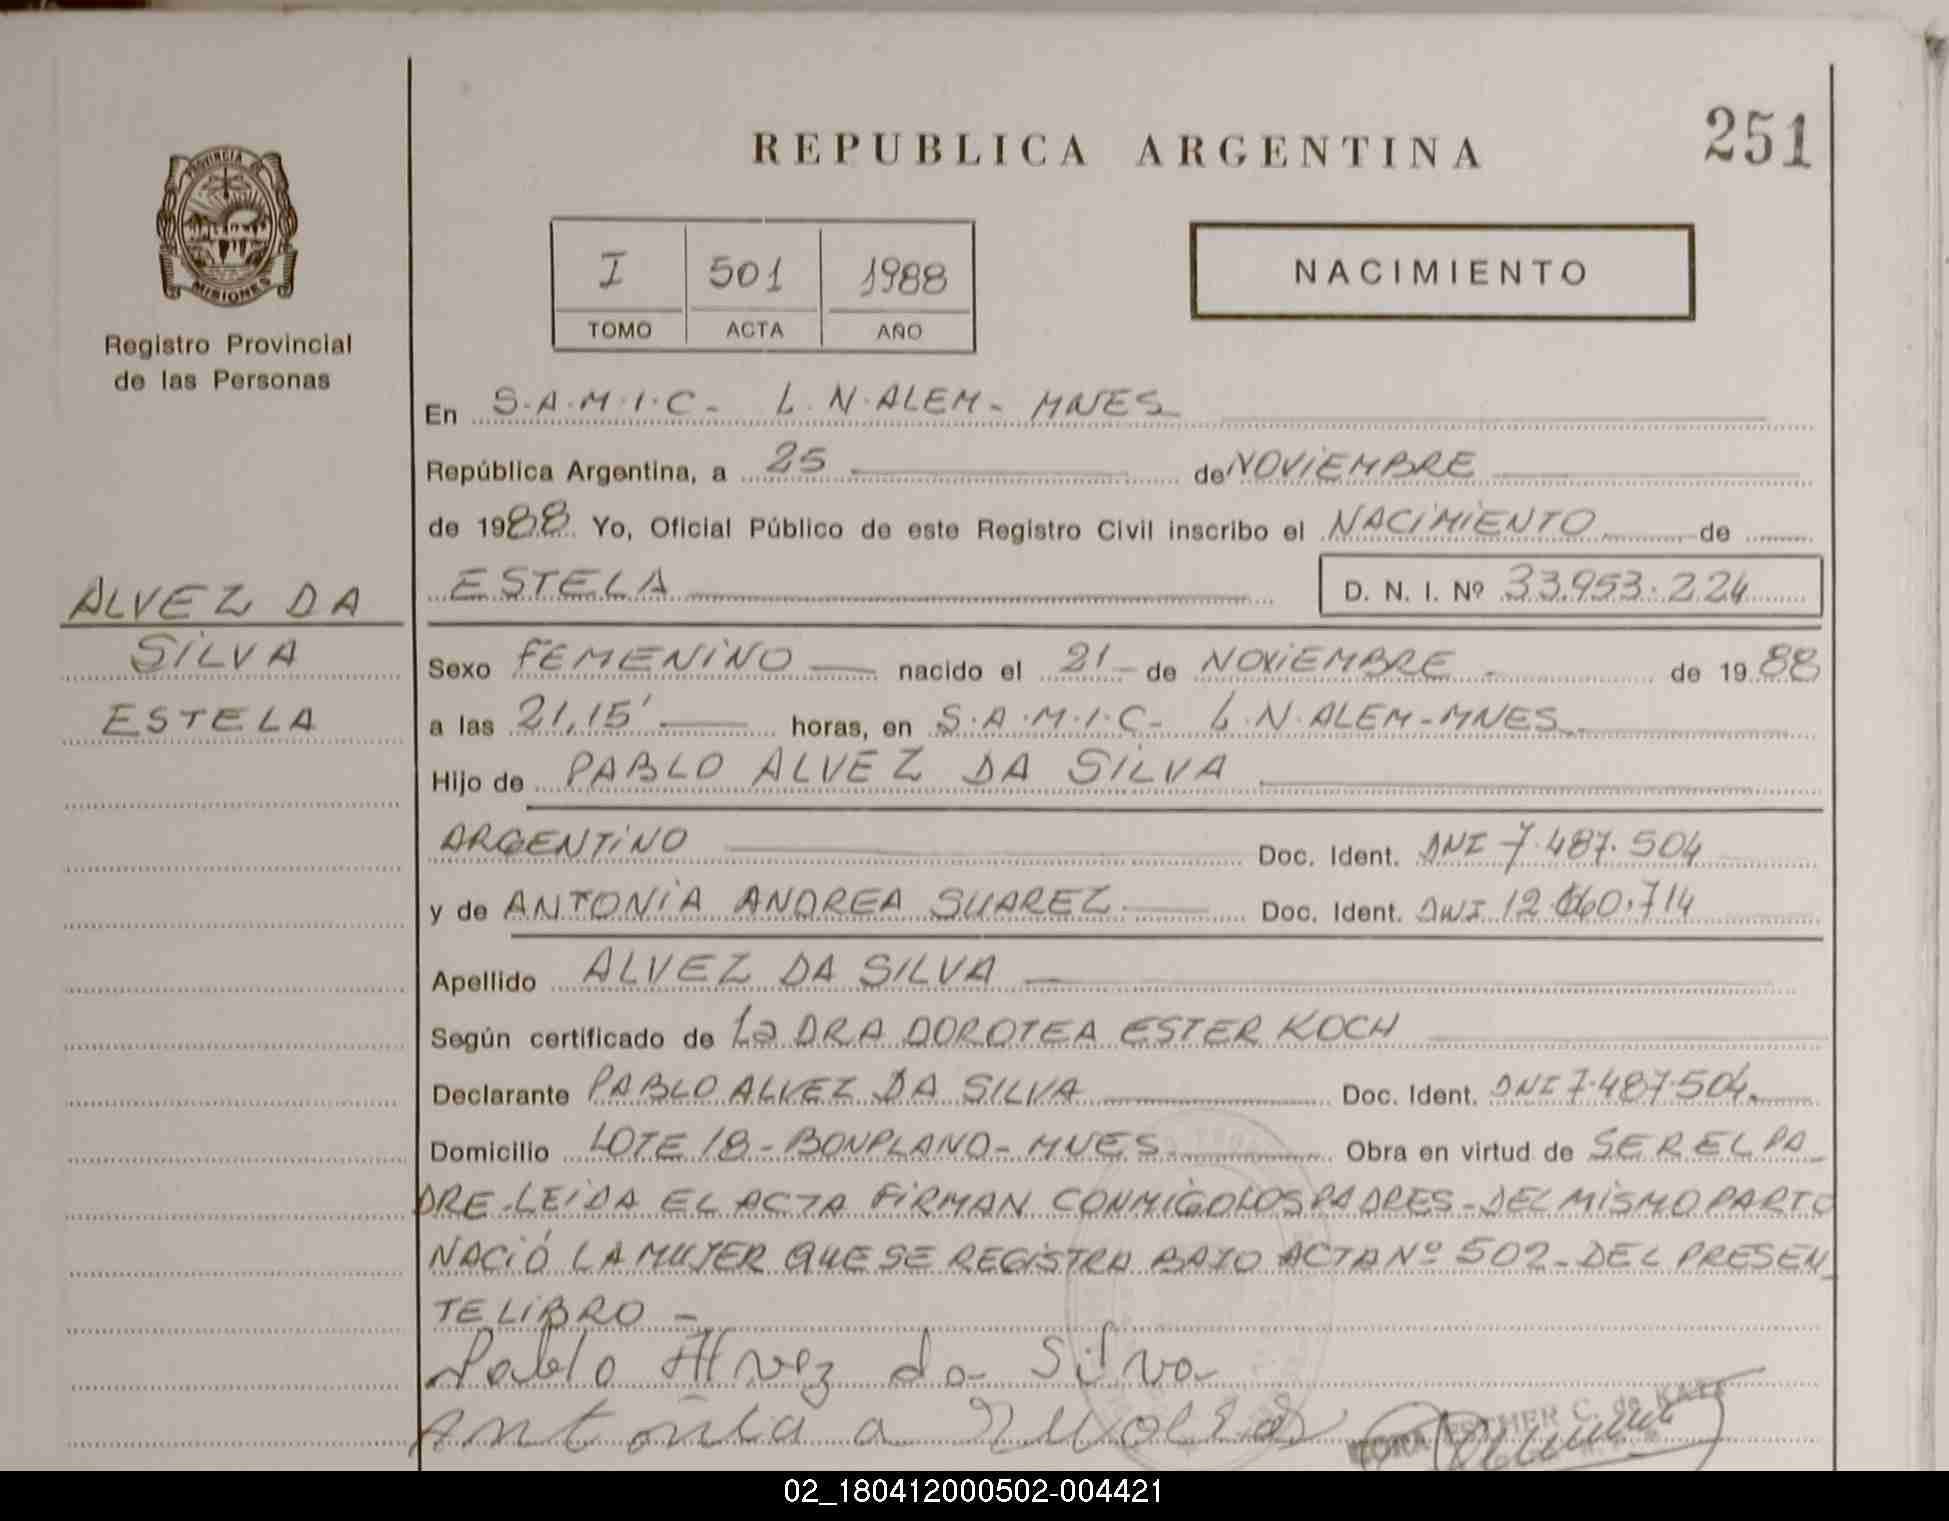 251
REPUBLICA ARGENTINA
PROVINCIA DE
MISIONES
Registro Provincial
de las Personas
I 501 1988
TOMO ACTA AÑO
NACIMIENTO
En S.A.M.I.C- L.N.ALEM- MNES
República Argentina, a 25 de NOVIEMBRE
de 1988 Yo, Oficial Público de este Registro Civil inscribo el NACIMIENTO de
ESTELA D. N. I. Nº 33.953.224
ALVEZ DA
SILVA
ESTELA
Sexo FEMENINO nacido el 21 de NOVIEMBRE de 1988
a las 21,15' horas, en S.A.M.I.C- L.N.ALEM-MNES
Hijo de PABLO ALVEZ DA SILVA
ARGENTINO Doc. Ident. DNI 7.487.504
y de ANTONIA ANDREA SUAREZ Doc. Ident. DNI 12.660.714
Apellido ALVEZ DA SILVA
Según certificado de La DRA DOROTEA ESTER KOCH
Declarante PABLO ALVEZ DA SILVA Doc. Ident. DNI 7.487.504.
Domicilio LOTE 18-BONPLAND-MNES Obra en virtud de SER EL PA-
DRE-LEIDA EL ACTA FIRMAN CONMIGO LOS PADRES-DEL MISMO PARTO
NACIÓ LA MUJER QUE SE REGISTRA BAJO ACTA Nº 502-DEL PRESEN-
TE LIBRO-
Pablo Alvez da Silva
Antonia a
ESTHER C. de
02_180412000502-004421